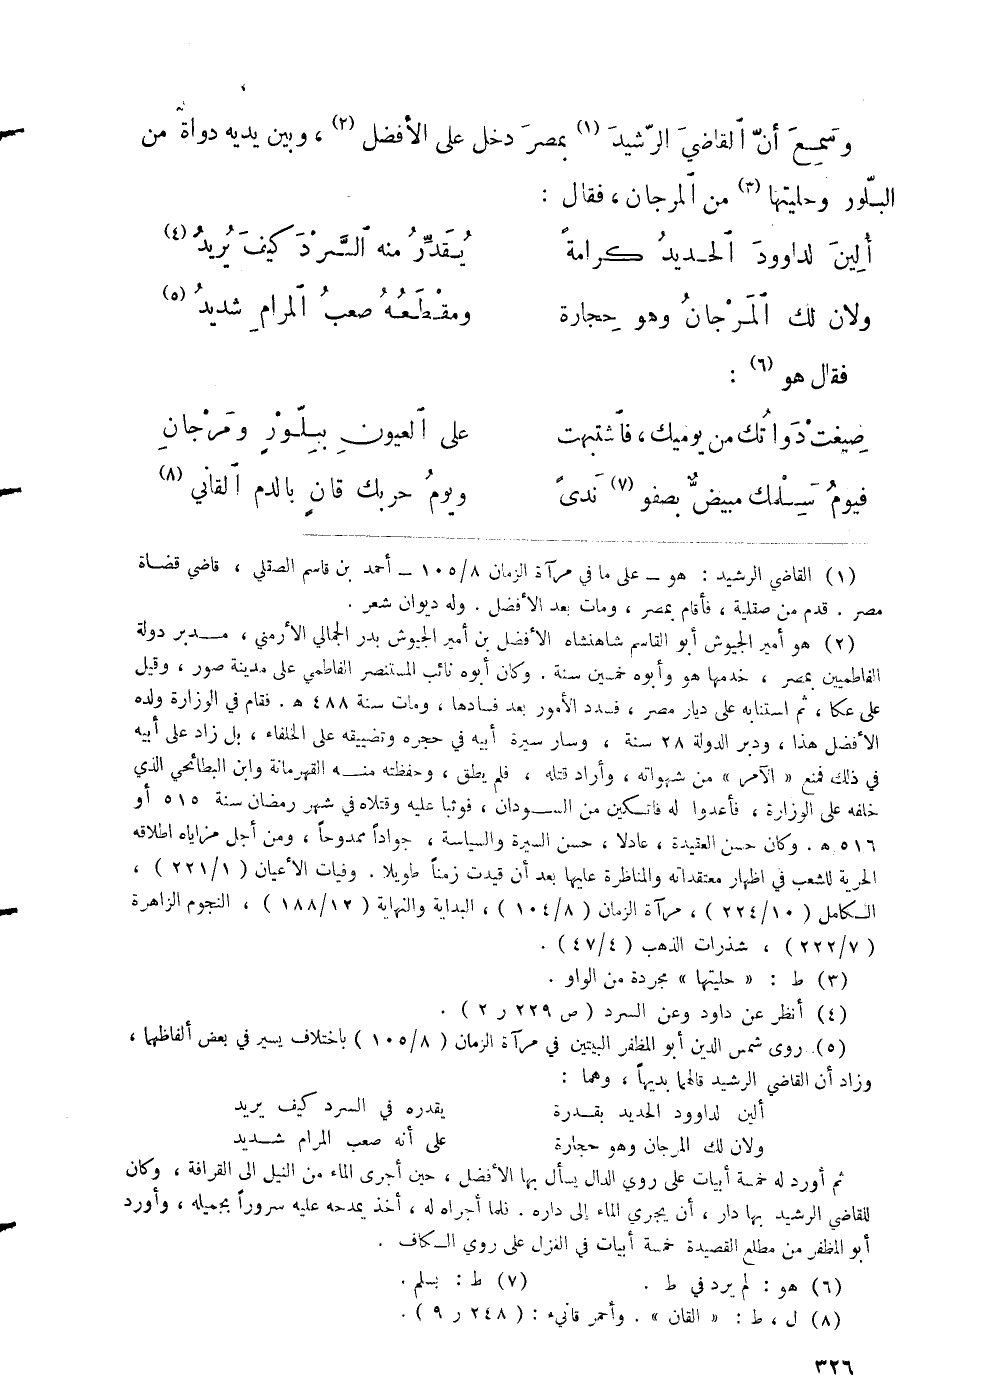 وسَمِعَ أنّ ٱلقاضيَ الرّشيدَ (١) بمصرَ دخل على الأفضل (٢) ، وبين يديه دواة من
البلّور وحليتها (٣) من ٱلمرجان ، فقال :
أُلِينَ لداوودَ ٱلحـديدُ كـرامةً يُـقَدِّرُ منه ٱلسَّرْدَ كيفَ يُريدُ (٤)
ولان لك ٱلمَرْجانُ وهو حِجارة ومقْـطَعُـهُ صعبُ ٱلمرامِ شديدُ (٥)
فقال هو (٦) :
صِيغتْ دَواتُك من يوميك ، فٱشتبهت على ٱلعيونِ ببِلَّـوْرٍ ومَرْجانِ
فيومُ سَِـلْمك مبيضٌّ بصفو (٧) نَدىً ويومُ حربك قانٍ بالدم ٱلقاني (٨)
(١) القاضي الرشيد : هو ـ على ما في مرآة الزمان ١٠٥/٨ ـ أحمد بن قاسم الصقلي ، قاضي قضـاة
مصر . قدم من صقلية ، فأقام بمصر ، ومات بعد الأفضل . وله ديوان شعر .
(٢) هو أمير الجيوش أبو القاسم شاهنشاه الأفضل بن أمير الجيوش بدر الجمالي الأرمني ، مـدبر دولة
الفاطميين بمصر ، خدمها هو وأبوه خمسين سنة . وكان أبوه نائب المستنصر الفاطمي على مدينة صور ، وقيل
على عكا ، ثم استنابه على ديار مصر ، فسدد الأمور بعد فسادها ، ومات سنة ٤٨٨ ه . فقام في الوزارة ولده
الأفضل هذا ، ودبر الدولة ٢٨ سنة ، وسار سيرة أبيه في حجره وتضييقه على الخلفاء ، بل زاد على أبيه
في ذلك فمنع « الآمر » من شهواته ، وأراد قتله ، فلم يطق ، وحفظته منـه القهرمانة وابن البطائحي الذي
خلفه على الوزارة ، فأعدوا له فاتـكين من السـودان ، فوثبا عليه وقتلاه في شهر رمضان سنة ٥١٥ أو
٥١٦ ه . وكان حسن العقيدة ، عادلا ، حسن السيرة والسياسة ، جواداً ممدوحاً ، ومن أجل مزاياه اطلاقه
الحرية للشعب في اظهار معتقداته والمناظرة عليها بعد أن قيدت زمناً طويلا . وفيات الأعيان ( ٢٢١/١ ) ،
الـكامل ( ٢٢٤/١٠ ) ، مرآة الزمان ( ١٠٤/٨ ) ، البداية والنهاية ( ١٨٨/١٢ ) ، النجوم الزاهرة
( ٢٢٢/٧ ) ، شذرات الذهب ( ٤٧/٤ ) .
(٣) ط : « حليتها » مجردة من الواو .
(٤) أنظر عن داود وعن السرد ( ص ٢٢٩ ر ٢ ) .
(٥) روى شمس الدين أبو المظفر البيتين في مرآة الزمان ( ١٠٥/٨ ) باختلاف يسير في بعض ألفاظهما ،
وزاد أن القاضي الرشيد قالهما بديهاً ، وهما :
ألين لداوود الحديد بقـدرة يقدره في السرد كيف يريد
ولان لك المرجان وهو حجارة على أنه صعب المرام شـديد
ثم أورد له خمسة أبيات على روي الدال يسأل بها الأفضل ، حين أجرى الماء من النيل الى القرافة ، وكان
للقاضي الرشيد بها دار ، أن يجري الماء إلى داره . فلما أجراه له ، أخذ يمدحه عليه سروراً بجميله ، وأورد
أبو المظفر من مطلع القصيدة خمسة أبيات في الغزل على روي الـكاف .
(٦) هو : لم يرد في ط . (٧) ط : بسلم .
(٨) ل ، ط : « القان » . وأحمر قانيء : ( ٢٤٨ ر ٩ ) .
٣٢٦